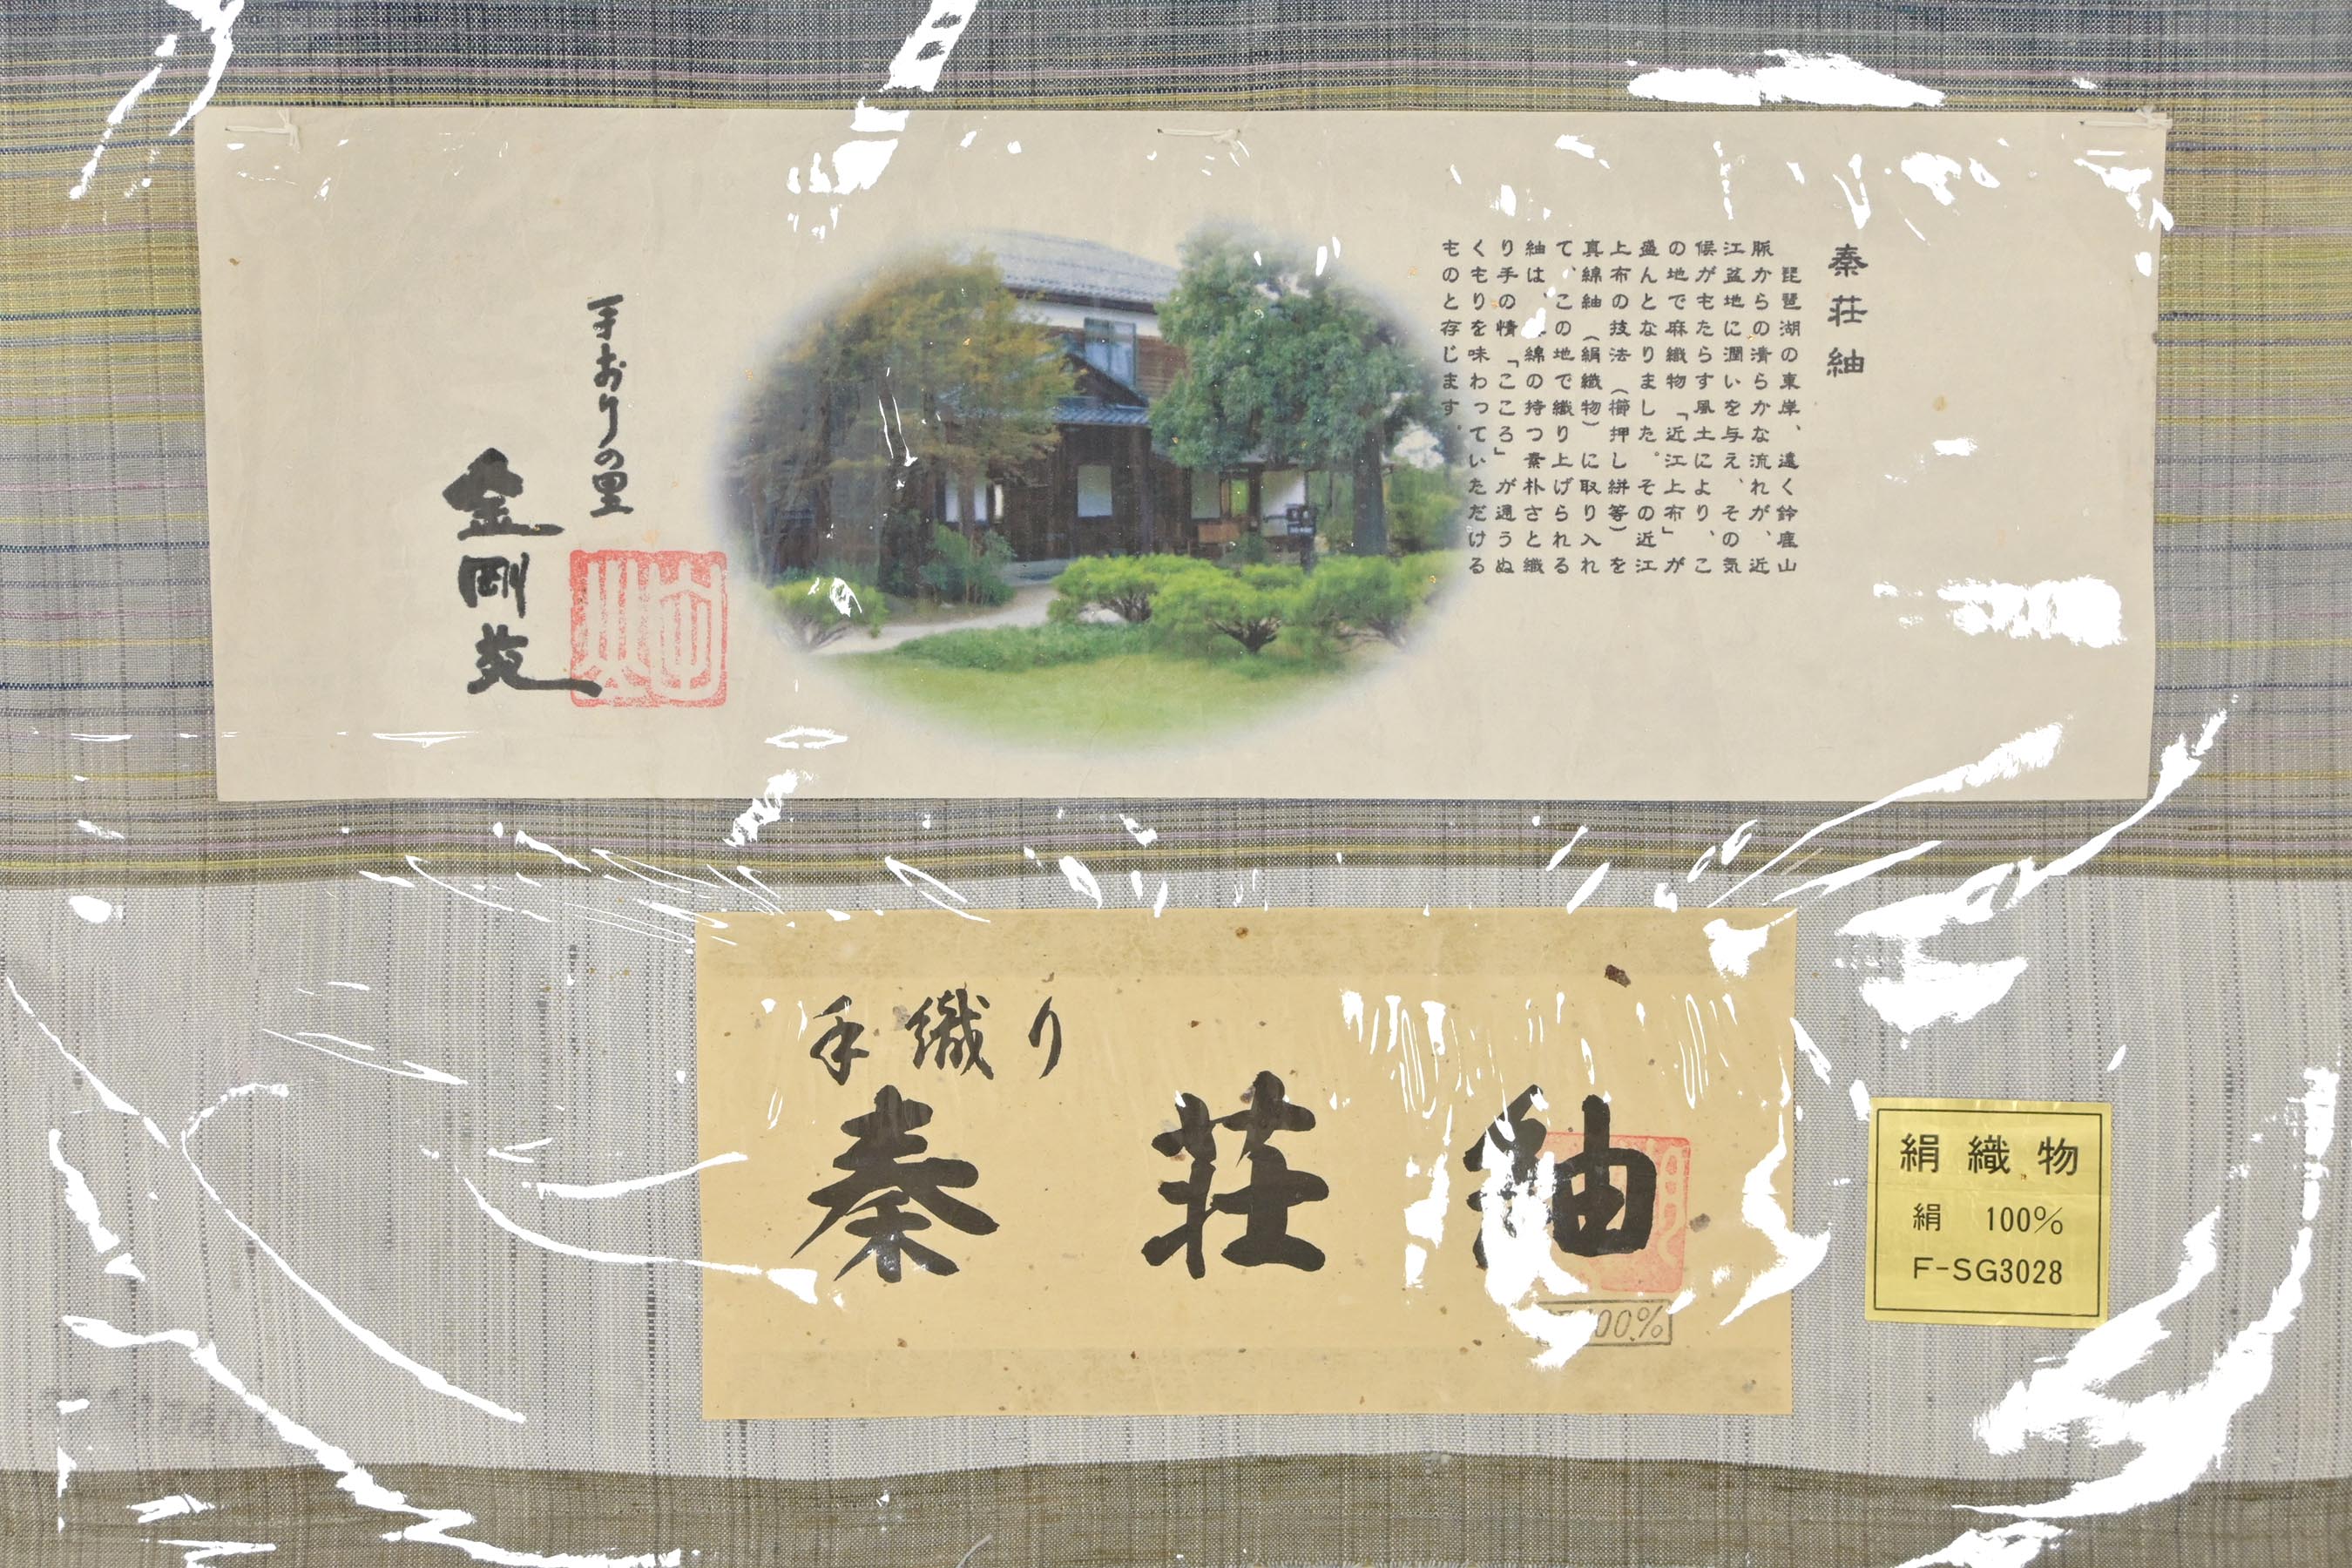 秦荘紬
琵琶湖の東岸、遠く鈴鹿山
脈からの清らかな流れが、近
江盆地に潤いを与え、その気
候がもたらす風土により、こ
の地で麻織物「近江上布」が
盛んとなりました。その近江
上布の技法(櫛押し絣等)を
真綿紬(絹織物)に取り入れ
て、この地で織り上げられる
紬は、綿の持つ素朴さと織
り手の情「こころ」が通うぬ
くもりを味わっていただける
ものと存じます。
手おりの里
金剛苑
手織り
秦荘紬
00%
絹織物
絹 100%
F-SG3028